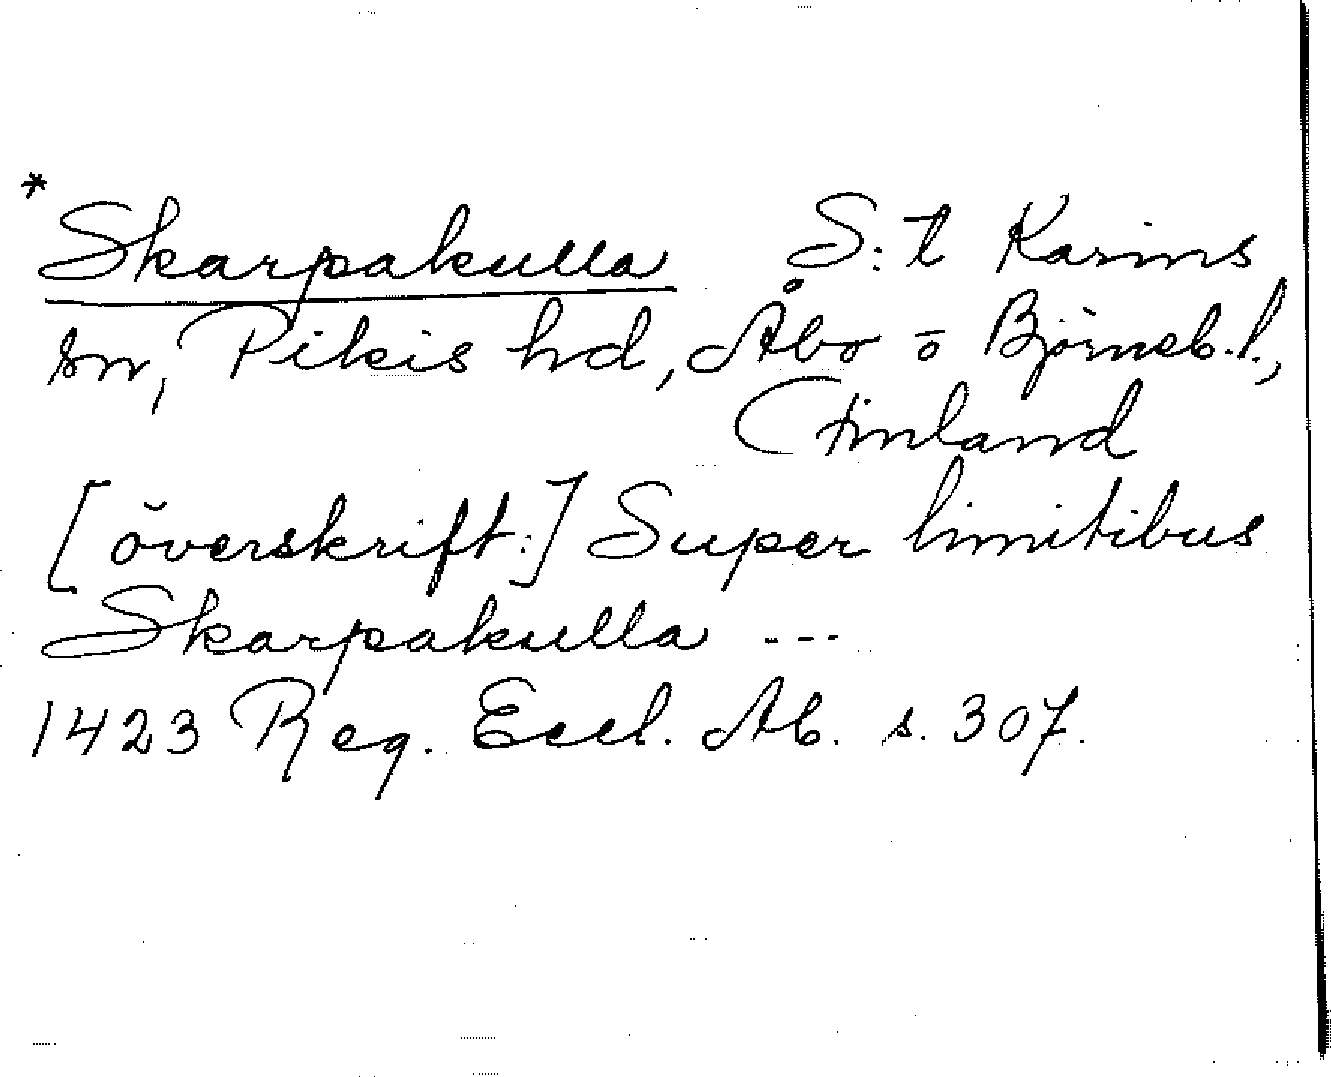 * Skarpakulla S:t Karins
sn, Pikis hd, Åbo o Björneb. l.,
Finland
[överskrift:] Super limitibus
Skarpakulla ---
1423 Reg. Eccl. Ab. s. 307.